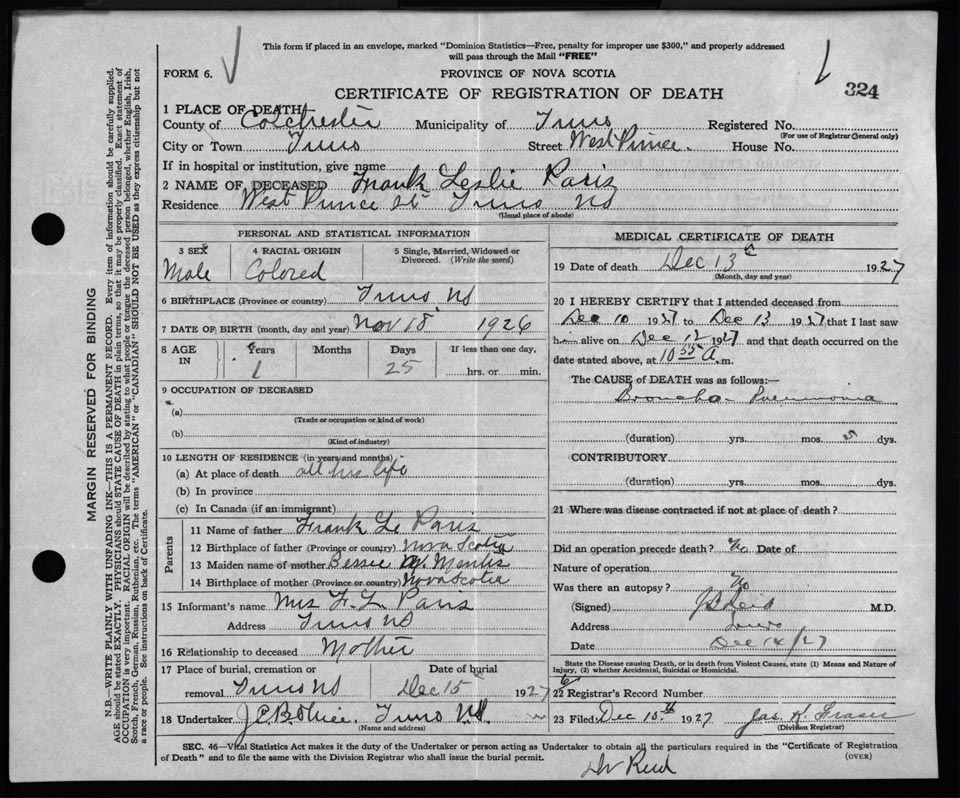 This form if placed in an envelope, marked "Dominion Statistics—Free, penalty for improper use $300," and properly addressed
will pass through the Mail "FREE"
FORM 6.
PROVINCE OF NOVA SCOTIA
324
CERTIFICATE OF REGISTRATION OF DEATH
1 PLACE OF DEATH—
County of Colchester Municipality of Truro Registered No.
(For use of Registrar General only)
City or Town Truro Street West Prince. House No.
If in hospital or institution, give name
2 NAME OF DECEASED Frank Leslie Paris
Residence West Prince St Truro NS
(Usual place of abode)
PERSONAL AND STATISTICAL INFORMATION
3 SEX 4 RACIAL ORIGIN 5 Single, Married, Widowed or Divorced. (Write the word)
Male Colored
6 BIRTHPLACE (Province or country) Truro NS
7 DATE OF BIRTH (month, day and year) Nov 18 1926
8 AGE IN Years Months Days If less than one day,
1 25 hrs. or min.
9 OCCUPATION OF DECEASED
(a)
(Trade or occupation or kind of work)
(b)
(Kind of industry)
10 LENGTH OF RESIDENCE (in years and months)
(a) At place of death all his life
(b) In province
(c) In Canada (if an immigrant)
Parents
11 Name of father Frank L Paris
12 Birthplace of father (Province or country) Nova Scotia
13 Maiden name of mother Bessie
14 Birthplace of mother (Province or country) Nova Scotia
15 Informant's name Mrs F. L. Paris
Address Truro NS
16 Relationship to deceased Mother
17 Place of burial, cremation or Date of burial
removal Truro NS Dec 15 1927
18 Undertaker Truro N.S.
(Name and address)
MEDICAL CERTIFICATE OF DEATH
19 Date of death Dec 13 1927
(Month, day and year)
20 I HEREBY CERTIFY that I attended deceased from
Dec 10 1927 to Dec 13 1927 that I last saw
h alive on Dec 12 1927 and that death occurred on the
date stated above, at 10 55 A.m.
The CAUSE of DEATH was as follows:—
Broncho Pneumonia
(duration) yrs. mos. 5 dys.
CONTRIBUTORY
(duration) yrs. mos. dys.
21 Where was disease contracted if not at place of death?
Did an operation precede death? No Date of
Nature of operation
Was there an autopsy? No
(Signed) Reid M.D.
Address Truro
Date Dec 14/27
State the Disease causing Death, or in death from Violent Causes, state (1) Means and Nature of
Injury, (2) whether Accidental, Suicidal or Homicidal.
22 Registrar's Record Number
23 Filed Dec 15th 1927 Jas. K. Fraser
(Division Registrar)
SEC. 46—Vital Statistics Act makes it the duty of the Undertaker or person acting as Undertaker to obtain all the particulars required in the "Certificate of Registration
of Death" and to file the same with the Division Registrar who shall issue the burial permit.
(OVER)
Dr Reid
MARGIN RESERVED FOR BINDING
N.B.—WRITE PLAINLY WITH UNFADING INK—THIS IS A PERMANENT RECORD. Every item of information should be carefully supplied.
AGE should be stated EXACTLY. PHYSICIANS should STATE CAUSE OF DEATH in plain terms, so that it may be properly classified. Exact statement of
OCCUPATION is very important. RACIAL ORIGIN will be described by stating to what people or tongue the deceased person belonged, whether English, Irish,
Scotch, French, German, Russian, Ruthenian, etc. The terms "AMERICAN" or "CANADIAN" SHOULD NOT BE USED as they express citizenship but not
a race or people. See instructions on back of Certificate.